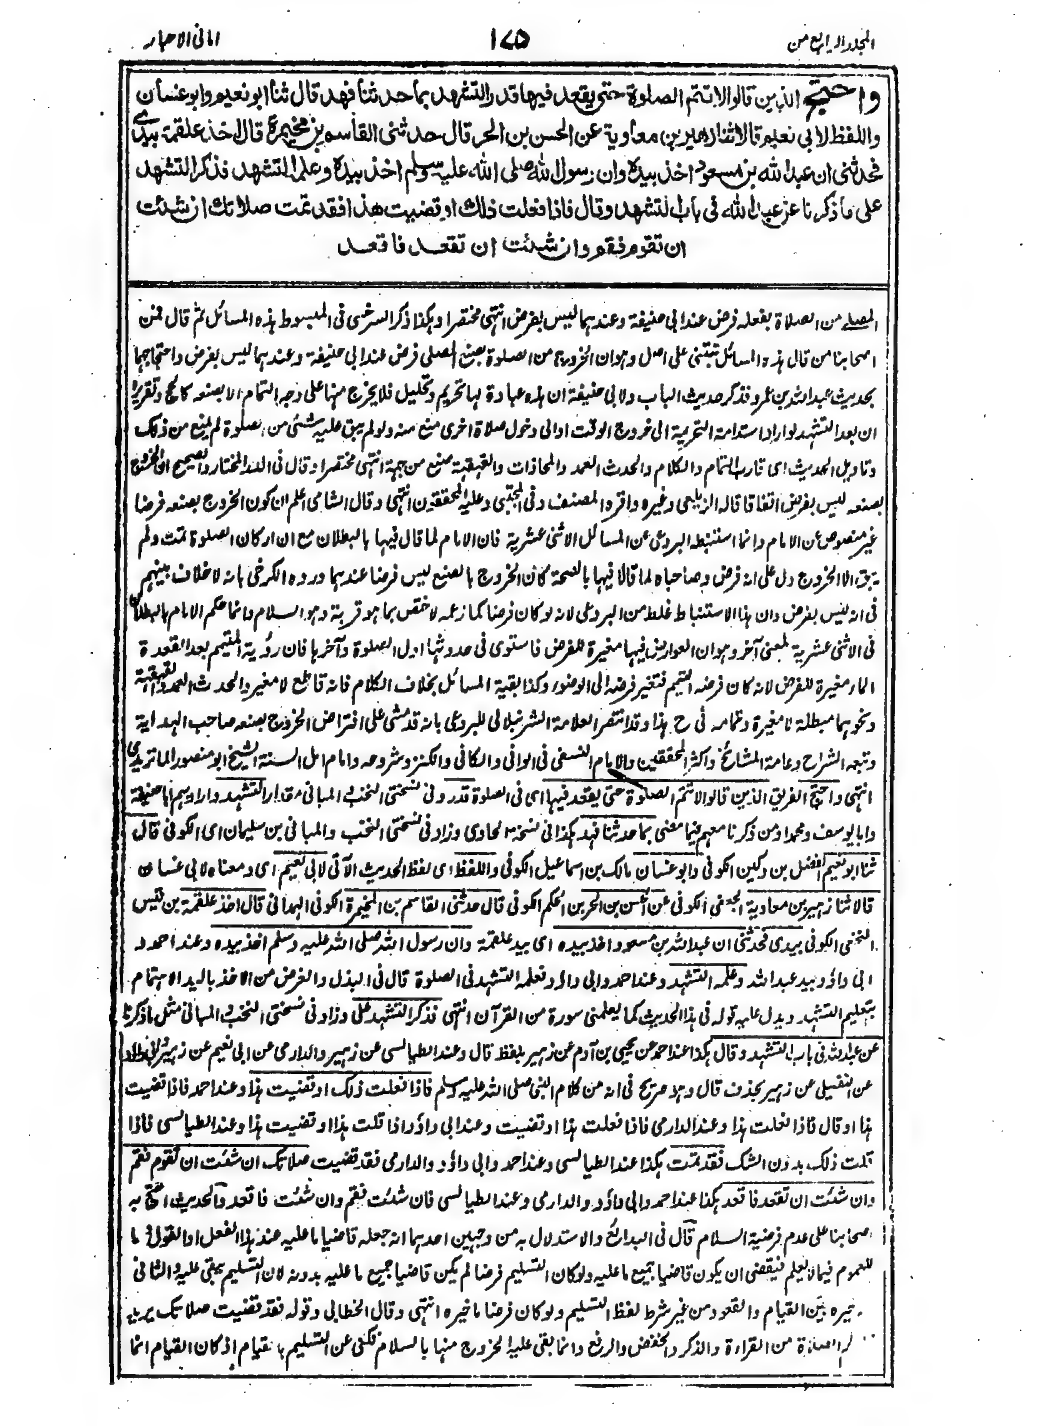 المجلد الرابع من
١٧٥
امانی الاحبار
واحتج الذین قالوا لا تتم الصلوة حتی یقعد فیها قدر التشهد بما حدثنا فهد قال ثنا ابو نعیم وابو غسان
واللفظ لابی نعیم قالا ثنا زهیر بن معاویة عن الحسن بن الحر قال حدثنی القاسم بن مخیمرة قال اخذ علقمة بیدی
فحدثنی ان عبد الله بن مسعود اخذ بیده وان رسول الله صلی الله علیه وسلم اخذ بیده وعلمه التشهد فذکر التشهد
علی ما ذکرنا عن عبد الله فی باب التشهد وقال فاذا فعلت ذلك او قضیت هذا فقد تمت صلاتك ان شئت
ان تقوم فقم وان شئت ان تقعد فاقعد
المصلی من الصلاة بفعله فرض عند ابی حنیفة وعندهما لیس بفرض انتهی مختصرا وهکذا ذکر السرخسی فی المبسوط هذه المسائل ثم قال فمن
اصحابنا من قال هذه المسائل تبتنی علی اصل وهو ان الخروج من الصلوة بصنع المصلی فرض عند ابی حنیفة وعندهما لیس بفرض واحتجاجهما
بحدیث عبد الله بن عمرو فذکر حدیث الباب ولابی حنیفة ان هذه عبادة لها تحریم وتحلیل فلا یخرج منها علی وجه التمام الا بصنعه کالحج وتقریره
ان بعد التشهد لو اراد استدامة التحریمة الی خروج الوقت او الی دخول صلاة اخری منع منه ولو لم یبق علیه شئی من الصلوة لم یمنع من ذلک
وتاویل الحدیث ای قارب التمام والکلام والحدث العمد والمحاذات والقهقهة صنع من جهته انتهی مختصرا وقال فی الدر المختار والصحیح ان الخروج
بصنعه لیس بفرض اتفاقا قاله الزیلعی وغیره واقره المصنف وفی المجتبی وعلیه المحققون انتهی وقال الشامی اعلم ان کون الخروج بصنعه فرضا
غیر منصوص عن الامام وانما استنبطه البردعی عن المسائل الاثنی عشریة فان الامام لما قال فیها بالبطلان مع ان ارکان الصلوة تمت ولم
یبق الا الخروج دل علی انه فرض وصاحباه لما قالا فیها بالصحة کان الخروج بالصنع لیس فرضا عندهما ورده الکرخی بانه لا خلاف بینهم
فی انه لیس بفرض وان هذا الاستنباط غلط من البردعی لانه لو کان فرضا کما زعمه لاختص بما هو قربة وهو السلام وانما حکم الامام بالبطلان
فی الاثنی عشریة لمعنی آخر وهو ان العوارض فیها مغیرة للفرض فاستوی فی حدوثها اول الصلوة وآخرها فان رؤیة المتیمم بعد القعدة
الماء مغیرة للفرض لانه کان فرضه التیمم فتغیر فرضه الی الوضوء وکذا بقیة المسائل بخلاف الکلام فانه قاطع لا مغیر والحدث العمد والقهقهة
ونحوهما مبطلة لا مغیرة وتمامه فی ح هذا وقد انتصر العلامة الشرنبلالی للبردعی بانه قد مشی علی افتراض الخروج بصنعه صاحب الهدایة
وتبعه الشراح وعامة المشائخ واکثر المحققین والامام النسفی فی الوافی والکافی والکنز وشروحه وامام اهل السنة الشیخ ابو منصور الماتریدی
انتهی واحتج الفریق الذین قالوا لا تتم الصلوة حتی یقعد فیها ای فی الصلوة قدر وفی نسختی النخب والمبانی مقدار التشهد واراد بهم ابا حنیفة
وابا یوسف ومحمدا ومن ذکرنا معهم فیما مضی بما حدثنا فهد هکذا فی نسخة الحاوی وزاد فی نسختی النخب والمبانی بن سلیمان ای الکوفی قال
ثنا ابو نعیم الفضل بن دکین الکوفی وابو غسان مالک بن اسماعیل الکوفی واللفظ ای لفظ الحدیث الآتی لابی نعیم ای ومعناه لابی غسان
قالا ثنا زهیر بن معاویة الجعفی الکوفی عن الحسن بن الحر بن الحکم الکوفی قال حدثنی القاسم بن المخیمرة الکوفی الهمدانی قال اخذ علقمة بن قیس
النخعی الکوفی بیدی فحدثنی ان عبد الله بن مسعود اخذ بیده ای بید علقمة وان رسول الله صلی الله علیه وسلم اخذ بیده وعند احمد و
ابی داؤد بید عبد الله وعلمه التشهد وعند احمد وابی داؤد فعلمه التشهد فی الصلوة قال فی البذل والغرض من الاخذ بالید الاهتمام
بتعلیم التشهد ویدل علیه قوله فی هذا الحدیث کما یعلمنی سورة من القرآن انتهی فذکر التشهد علی وزاد فی نسختی النخب والمبانی مثل ما ذکرنا
عن عبد الله فی باب التشهد وقال هکذا عند احمد عن یحیی بن آدم عن زهیر بلفظ قال وعند الطیالسی عن زهیر والدارمی عن ابی نعیم عن زهیر
عن النفیلی عن زهیر بحذف قال وهو صریح فی انه من کلام النبی صلی الله علیه وسلم فاذا فعلت ذلک او قضیت هذا وعند احمد فاذا قضیت
هذا او قال فاذا فعلت هذا وعند الدارمی فاذا فعلت هذا او قضیت وعند ابی داؤد اذا قلت هذا او قضیت هذا وعند الطیالسی فاذا
قلت ذلک بدون الشک فقد تمت هکذا عند الطیالسی وعند احمد وابی داؤد والدارمی فقد قضیت صلاتک ان شئت ان تقوم فقم
وان شئت ان تقعد فاقعد هکذا عند احمد وابی داؤد والدارمی وعند الطیالسی فان شئت فقم وان شئت فاقعد والحدیث احتج به
اصحابنا علی عدم فرضیة السلام قال فی البدائع والاستدلال به من وجهین احدهما انه جعله قاضیا ما علیه عند هذا الفعل او القول و ما
للعموم فیما لا یعلم فیقتضی ان یکون قاضیا بجمیع ما علیه ولو کان التسلیم فرضا لم یکن قاضیا جمیع ما علیه بدونه لان التسلیم یبقی علیه والثانی
خیره بین القیام والقعود من غیر شرط لفظ التسلیم ولو کان فرضا ما خیره انتهی وقال الخطابی وقوله فقد قضیت صلاتک یرید
الصلاة من القراءة والذکر والخفض والرفع وانما بقی علیه الخروج منها بالسلام فکنی عن التسلیم بالقیام اذ کان القیام انما